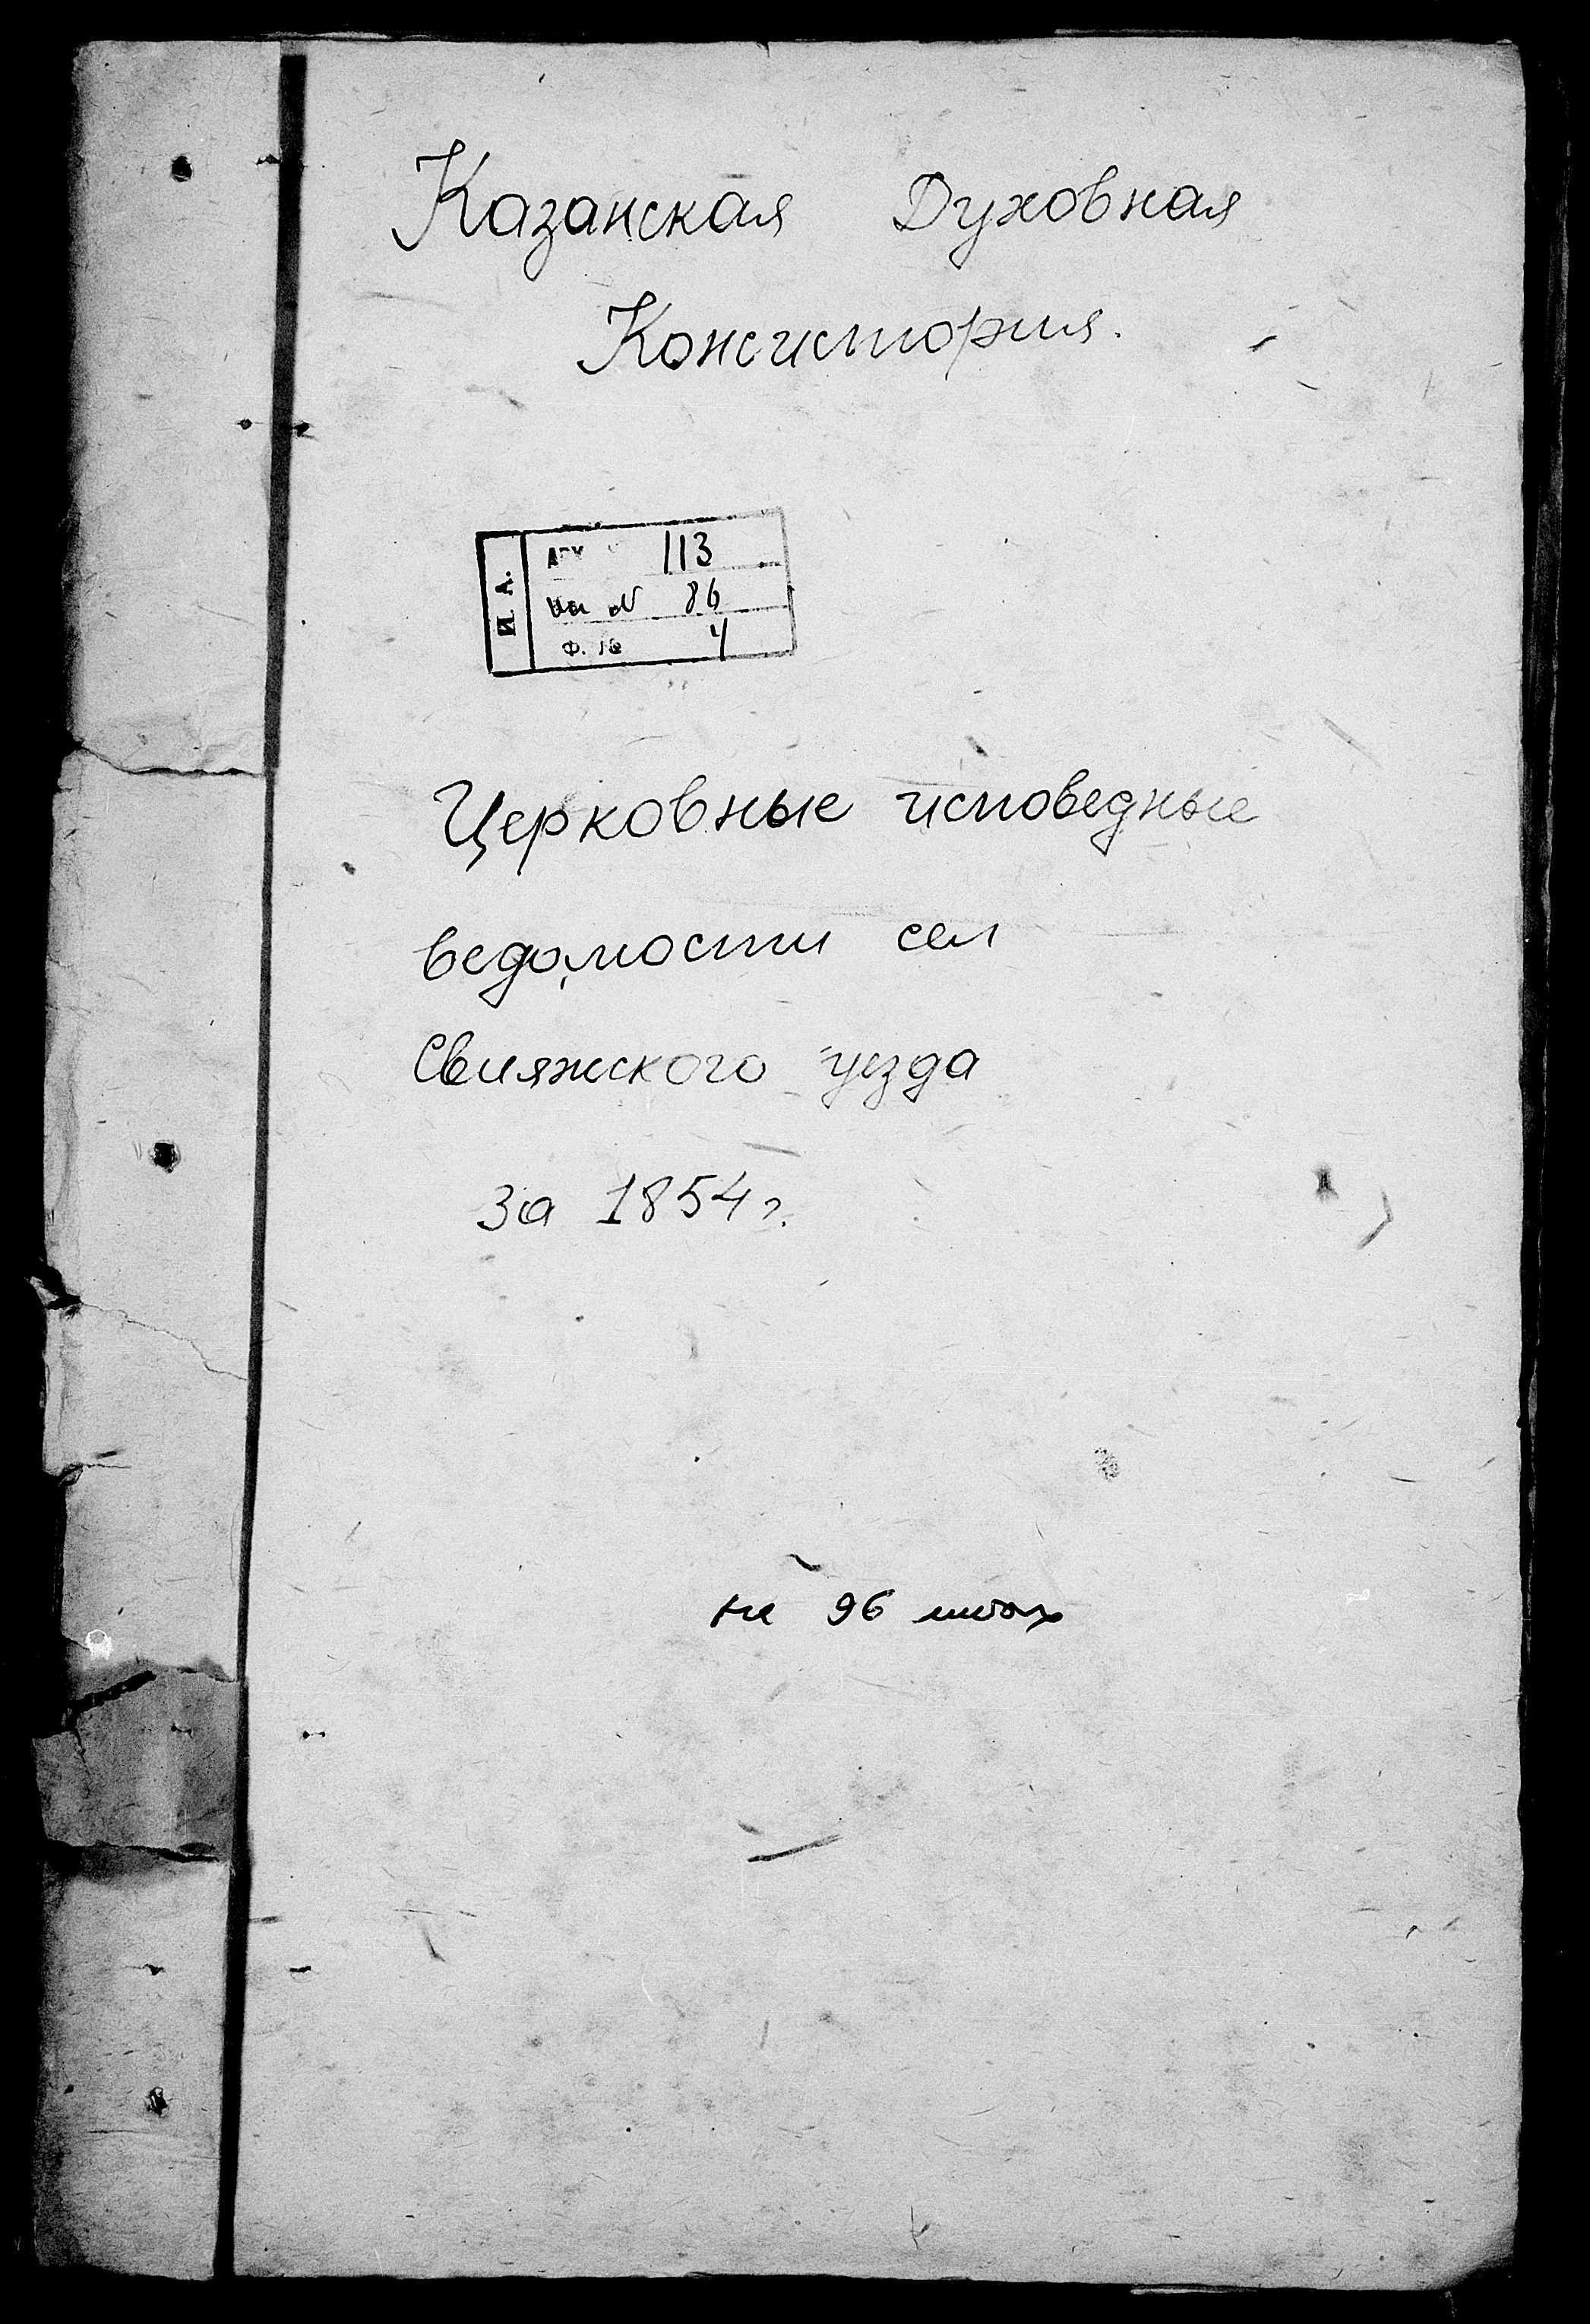 Казанская Духовная
Консистория.
И. А.
Арх 113
№ 86
Ф. № 4
Церковные исповедные
ведомости сел
Свияжского уезда
за 1854 г.
на 96 листах